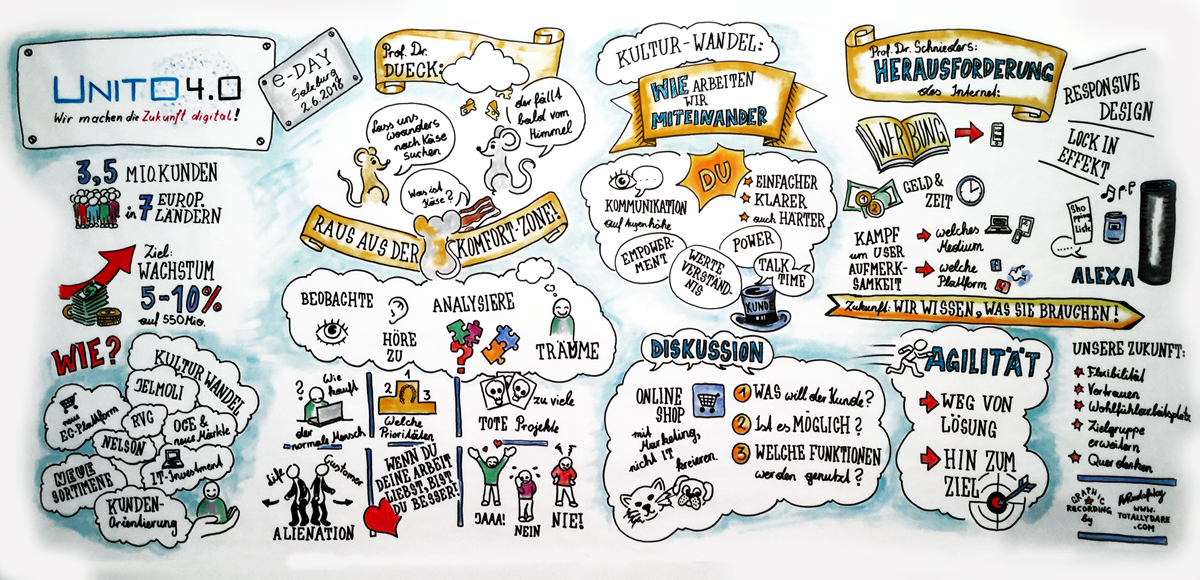 UNITO 4.0
Wir machen die Zukunft digital!
e-DAY
Salzburg
2.6.2018
3,5 MIO. KUNDEN
in 7 EUROP.
LÄNDERN
Ziel:
WACHSTUM
5-10%
auf 550 Mio.
WIE?
KULTUR WANDEL
JELMOLI
neue
EC-Plattform
RVG
OGE &
neue Märkte
NELSON
IT-Investment
NEUE
SORTIMENE
KUNDEN-
Orientierung
Prof. Dr.
DUECK:
Lass uns
woanders
nach Käse
suchen
der fällt
bald vom
Himmel
Was ist
Käse?
RAUS AUS DER KOMFORT-ZONE!
BEOBACHTE
HÖRE
ZU
ANALYSIERE
TRÄUME
?
Wie
kauft
der
normale Mensch
1
2
3
Welche
Prioritäten
zu viele
TOTE Projekte
Lilit
Customer
ALIENATION
WENN DU
DEINE ARBEIT
LIEBST, BIST
DU BESSER!
JAAA!
NEIN
NIE!
KULTUR-WANDEL:
WIE ARBEITEN
WIR
MITEINANDER
KOMMUNIKATION
auf Augenhöhe
DU
EINFACHER
KLARER
auch HÄRTER
EMPOWER-
MENT
WERTE
VERSTÄND-
NIS
POWER
TALK
TIME
KUNDE
DISKUSSION
ONLINE
SHOP
mit
Marketing,
nicht IT
kreieren.
1 WAS will der Kunde?
2 Ist es MÖGLICH?
3 WELCHE FUNKTIONEN
werden genutzt?
Prof. Dr. Schnieders:
HERAUSFORDERUNG
des Internet:
WERBUNG
GELD &
ZEIT
KAMPF
um USER
AUFMERK-
SAMKEIT
welches
Medium
welche
Plattform
RESPONSIVE
DESIGN
LOCK IN
EFFEKT
ALEXA
Zukunft: WIR WISSEN, WAS SIE BRAUCHEN!
AGILITÄT
WEG VON
LÖSUNG
HIN ZUM
ZIEL
UNSERE ZUKUNFT:
Flexibilität
Vertrauen
Wohlfühlarbeitsplatz
Zielgruppe
erweitern
Quer denken
GRAPHIC
RECORDING
by
WWW.
TOTALLYDARE
.COM